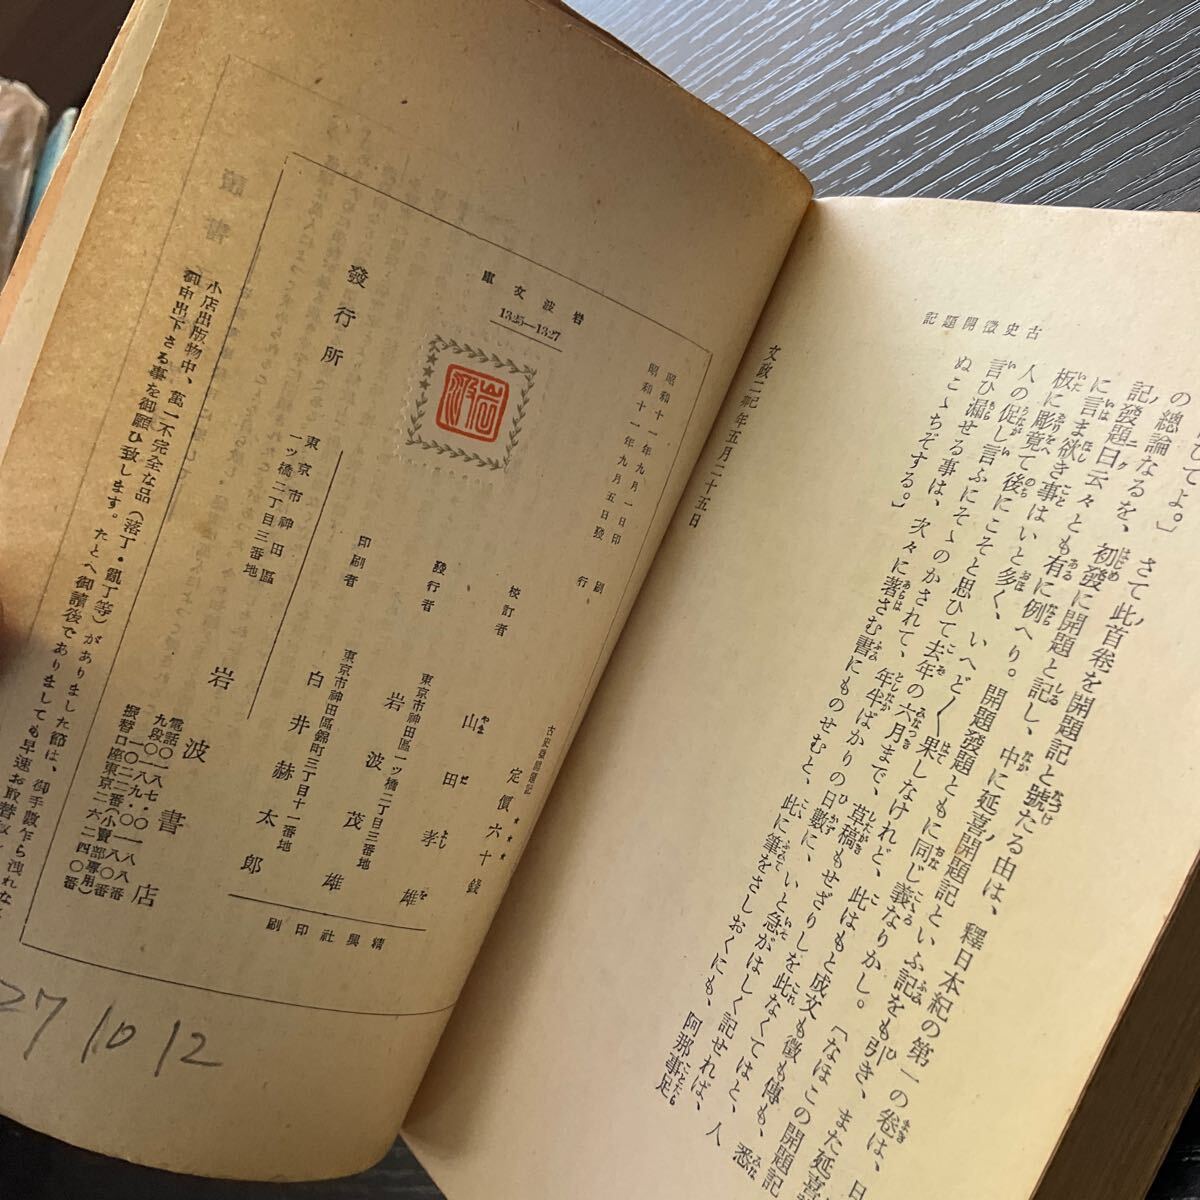 古史徵開題記
ひてよ。」　さて此首卷を開題記と號たる由は、釋日本紀の第一の卷は、日
の總論なるを、初發に開題と記し、中に延喜開題記といふ記をも引き、また延喜
記發題曰云々とも有に例へり。開題發題ともに同じ義なりかし。「なほこの開題記
に言ま欲き事はいと多く、いへど〳〵果しなけれど、此はもと成文も徵も傳も、悉
板に彫竟て後にこそと思ひて去年の六月まで、草稿もせざりしを此なくてはと、人
人の促し言ふにそゝのかされて、年半ばかりの日數に、いと急がはしく記せれば、
言ひ漏せる事は、次々に著さむ書にものせむと、此に筆をさしおくにも、阿那事足
ぬこゝちぞする。」
文政二年五月二十五日
岩波文庫
1325—1327
岩波
昭和十一年九月一日印刷
昭和十一年九月五日發行
古史徵開題記
定價六十錢
校訂者　山田孝雄
やまだよしを
發行者
東京市神田區一ツ橋二丁目三番地
岩波茂雄
印刷者
東京市神田區錦町三丁目十一番地
白井赫太郎
精興社印刷
發行所
東京市神田區
一ツ橋二丁目三番地
岩波書店
小店出版物中、萬一不完全な品（落丁・亂丁等）がありました節は、御手數乍ら洩れなく
御申出下さる事を御願ひ致します。たとへ御讀後でありましても早速お取替
27 10 12